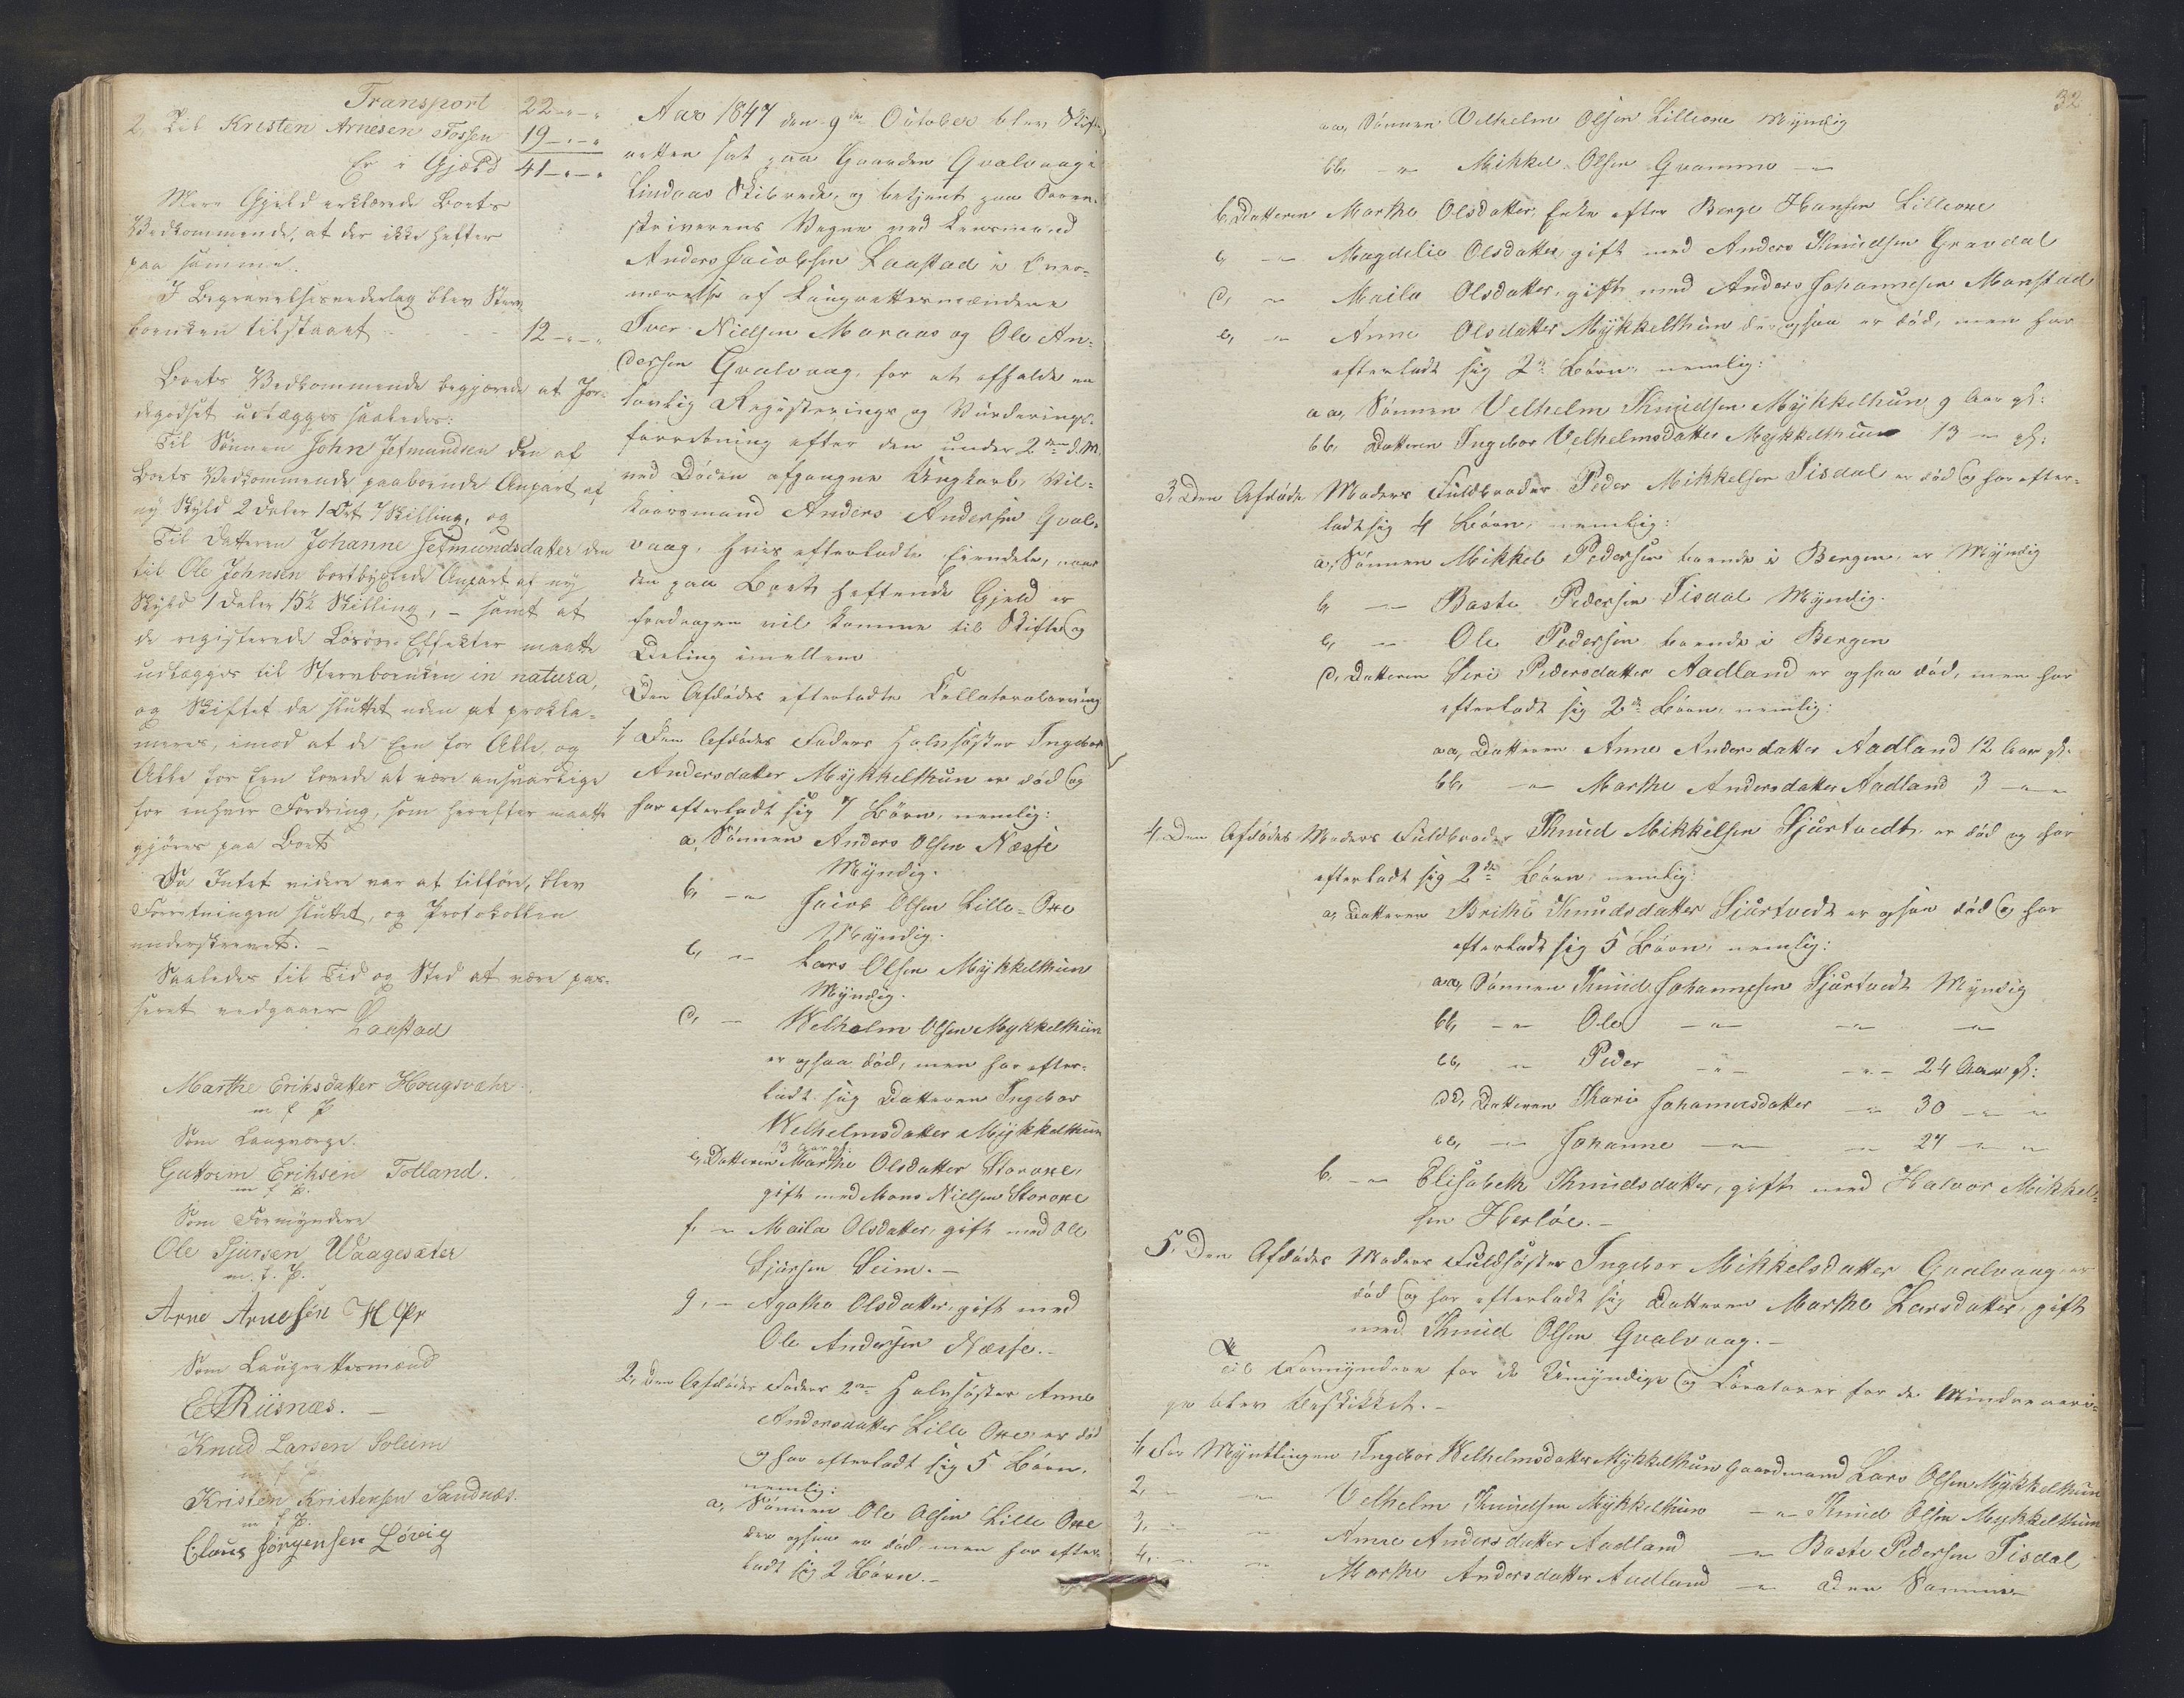 Transport 22 - " - "
2, Til Kristen Arnesen Fossen 19 - " - "
Er i Gjæld 41 - " - "
Mere Gjæld erklærede Boets
Vedkommende, at der ikke hefter
paa samme.
I Begravelsesvederlag blev Sterv-
boenken tilstaaet 12 - " - "
Boets Vedkommende begjærede at Jor-
degodset udlægges saaledes:
Til Sønnen John Jetmundsen den af
Boets Vedkommende paaboende Anpart af
ny Skyld 2 Daler 1 Ort 7 Skilling, og
Til Datteren Johanne Jetmundsdatter den
til Ole Johnsen bortbygslede Anpart af ny
Skyld 1 Daler 15½ Skilling, – samt at
de registerede Løsøre Effekter maatte
udlægges til Stervboenken in natura,
og Skiftet da sluttet uden at prokla-
meres, imod at de Een for Alle og
Alle for Een lovede at være ansvarlige
for enhver Fordring, som herefter maatte
gjøres paa Boet
Da Intet videre var at tilføre, blev
Forretningen sluttet, og Protokollen
underskrevet. –
Saaledes til Tid og Sted at være pas-
seret vedgaaer
Laastad
Marthe Eriksdatter Hougsvær
m f P
Som Laugværge.
Guttorm Eriksen Tolland.
m f P.
Som Formyndere
Ole Sjursen Waagesæter
m. f. P.
Arne Arnesen
Som Laugrettesmænd
E Riisnæs. –
Knud Larsen Soleim
m f P
Kristen Kristensen Sandnæs.
m f P.
Claus Jørgensen Løvig
Aar 1847 den 9de October blev Skifte-
retten sat paa Gaarden Qvalvaag i
Lindaas Skibrede, og betjent paa Soren-
skriverens Vegne ved Lensmand
Anders Jacobsen Laastad i Over-
værelse af Laugrettesmændene
Iver Nielsen Maraas og Ole An-
dersen Qvalvaag, for at afholde en
lovlig Registerings og Vurderings-
forretning efter den under 2den d. M.
ved Døden afgangne Ungkarl, Vil-
kaarsmand Anders Andersen Qval-
vaag, hvis efterladte Eiendele, naar
den paa Boet heftende Gjæld er
fradragen vil komme til Skifte og
Deling imellem
Den Afdødes efterladte Collateralarving
1, Den Afdødes Faders Halvsøster Ingebor
Andersdatter Mykkelthun er død og
har efterladt sig 7 Børn, nemlig:
a, Sønnen Anders Olsen Næsse
Myndig.
b, – " – Jacob Olsen Lille-Oxe
Myndig.
c, – " – Lars Olsen Mykkelthun
Myndig.
d, – Welhelm Olsen Mykkelthun
er ogsaa død, men har efter-
ladt sig Datteren Ingebor
Welhelmsdatter Mykkelthun
13 Aar gl.
e, Datteren Marthe Olsdatter Storoxe,
gift med Mons Nielsen Storoxe
f, – " Maila Olsdatter, gift med Ole
Sjursen Seim. –
g, – Agatha Olsdatter, gift med
Ole Andersen Næsse. –
2, Den Afdødes Faders 2den Halvsøster Anne
Andersdatter Lille Oxe, er død
og har efterladt sig 5 Børn,
nemlig:
a, Sønnen Ole Olsen Lille Oxe
der ogsaa er død, men har efter-
ladt sig 2 Børn. –
32
aa, Sønnen Velhelm Olsen Lilleoxe Myndig
bb, – " Mikkel Olsen Qvamme – " –
b, Datteren Marthe Olsdatter, Enke efter Berge Hansen Lilleoxe
c, – " – Magdelie Olsdatter, gift med Anders Knudsen Gravdal
d, – " – Maila Olsdatter, gift med Anders Johannesen Marstad
e, – " – Anne Olsdatter Mykkelthun der ogsaa er død, men har
efterladt sig 2de Børn, nemlig:
aa, Sønnen Velhelm Knudsen Mykkelthun 9 Aar gl:
bb, Datteren Ingebor Velhelmsdatter Mykkelthun 13 – " gl:
3, Den Afdøde Moders Fuldbroder Peder Mikkelsen Tisdal er død og har efter-
ladt sig 4 Børn, nemlig:
a, Sønnen Mikkel Pedersen boende i Bergen, er Myndig
b, – " – Baste Pedersen Tisdal Myndig.
c, – " – Ole Pedersen boende i Bergen
d, Datteren Siri Pedersdatter Aadland er ogsaa død, men har
efterladt sig 2de Børn, nemlig:
aa, Datteren Anne Andersdatter Aadland 12 Aar gl:
bb, – " – Marthe Andersdatter Aadland 3 – " –
4, Den Afdødes Moders Fuldbroder Knud Mikkelsen Hjartvedt er død og har
efterladt sig 2de Børn, nemlig:
a, Datteren Brithe Knudsdatter Hjartvedt er ogsaa død og har
efterladt sig 5 Børn, nemlig:
aa, Sønnen Knud Johannesen Hjartvedt Myndig
bb, – " – Ole – " – – " – – " –
cc, – " – Peder – " – – " – 24 Aar gl:
dd, Datteren Kari Johannesdatter – " – 30 – " – "
ee, – " – Johanne – " – – " – 27 – " – "
b, – " – Elisabeth Knudsdatter, gift med Halvor Mikkel-
sen Herløe. –
5, Den Afdødes Moders Fuldsøster Ingebor Mikkelsdatter Qvalvaag, er
død og har efterladt sig Datteren Marthe Larsdatter, gift
med Knud Olsen Qvalvaag. –
Til Formyndere for de Umyndige og Curatorer for de Mindreaari-
ge blev beskikket. –
1, For Myndlingen Ingebor Welhelmsdatter Mykkelthun Gaardmand Lars Olsen Mykkelthun
2, – " – Velhelm Knudsen Mykkelthun – " – Knud Olsen Mykkelthun
3, – " – Anne Andersdatter Aadland – " – Baste Pedersen Tisdal
4, – " – Marthe Andersdatter Aadland – " – den Samme